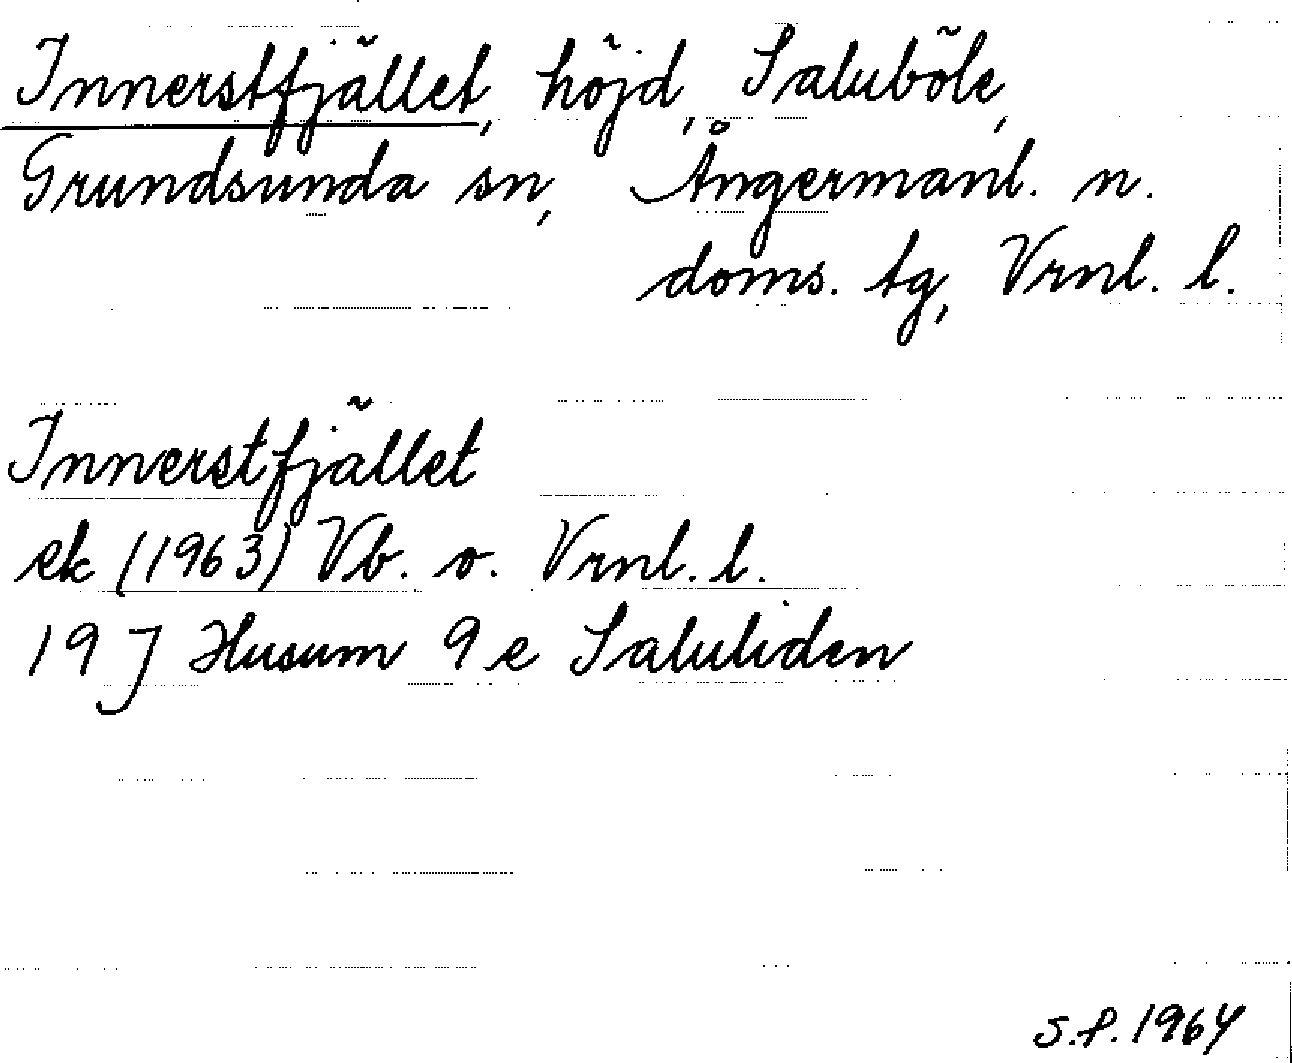 Innerstfjället, höjd, Saluböle,
Grundsunda sn, Ångermanl. n.
doms. tg, Vrnl. l.
Innerstfjället
ek (1963) Vb. o. Vrnl. l.
19 J Husum 9 e Saluliden
S.P. 1964